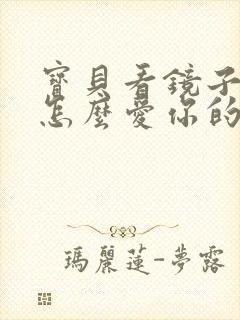 寶貝看鏡子
怎麼愛你的
瑪麗蓮-夢露